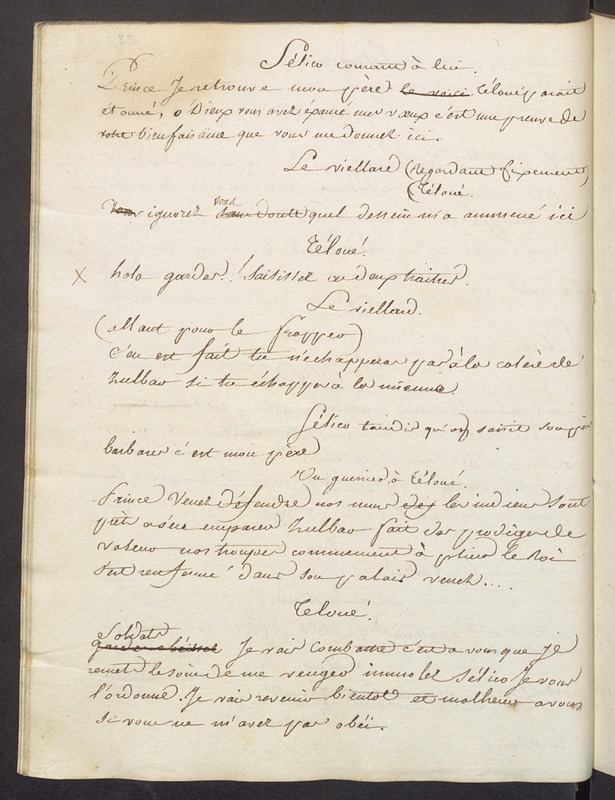 Sélico courant à lui.
Prince Je retrouve mon père le voici Téloué parait
étonné, o Dieux vous avez épauié mes vœux c'est une preuve de
votre bienfaisance que vous me donnez ici.
Le viellard (Regardant fixement
Téloué.
Vous ignorez vous sans doute quel dessein m'a ammené ici
Téloué.
X hola gardes! Saisissez ces deux traitres.
Le viellard.
(allant pour le frapper)
c'en est fait tu n'echapperas pas à la colère de
Zulbar si tu échappe à la mienne.
Sélico tandis qu'on saisit son père
barbares c'est mon père
Un guerrier à Téloué.
Prince Venez défendre nos murs des les indiens sont
prêt a s'en emparer Zulbar fait des prodiges de
valeur nos troupes commencent à plier le Roi
s'est renfermé dans son palais venez....
Téloué.
Soldats
gardes obéissez Je vais combattre c'est a vous que Je
remets le soin de me venger immolez Sélico Je vous
l'ordonne. Je vais revenir bientot et malheur a vous
si vous ne m'avez pas obéi.